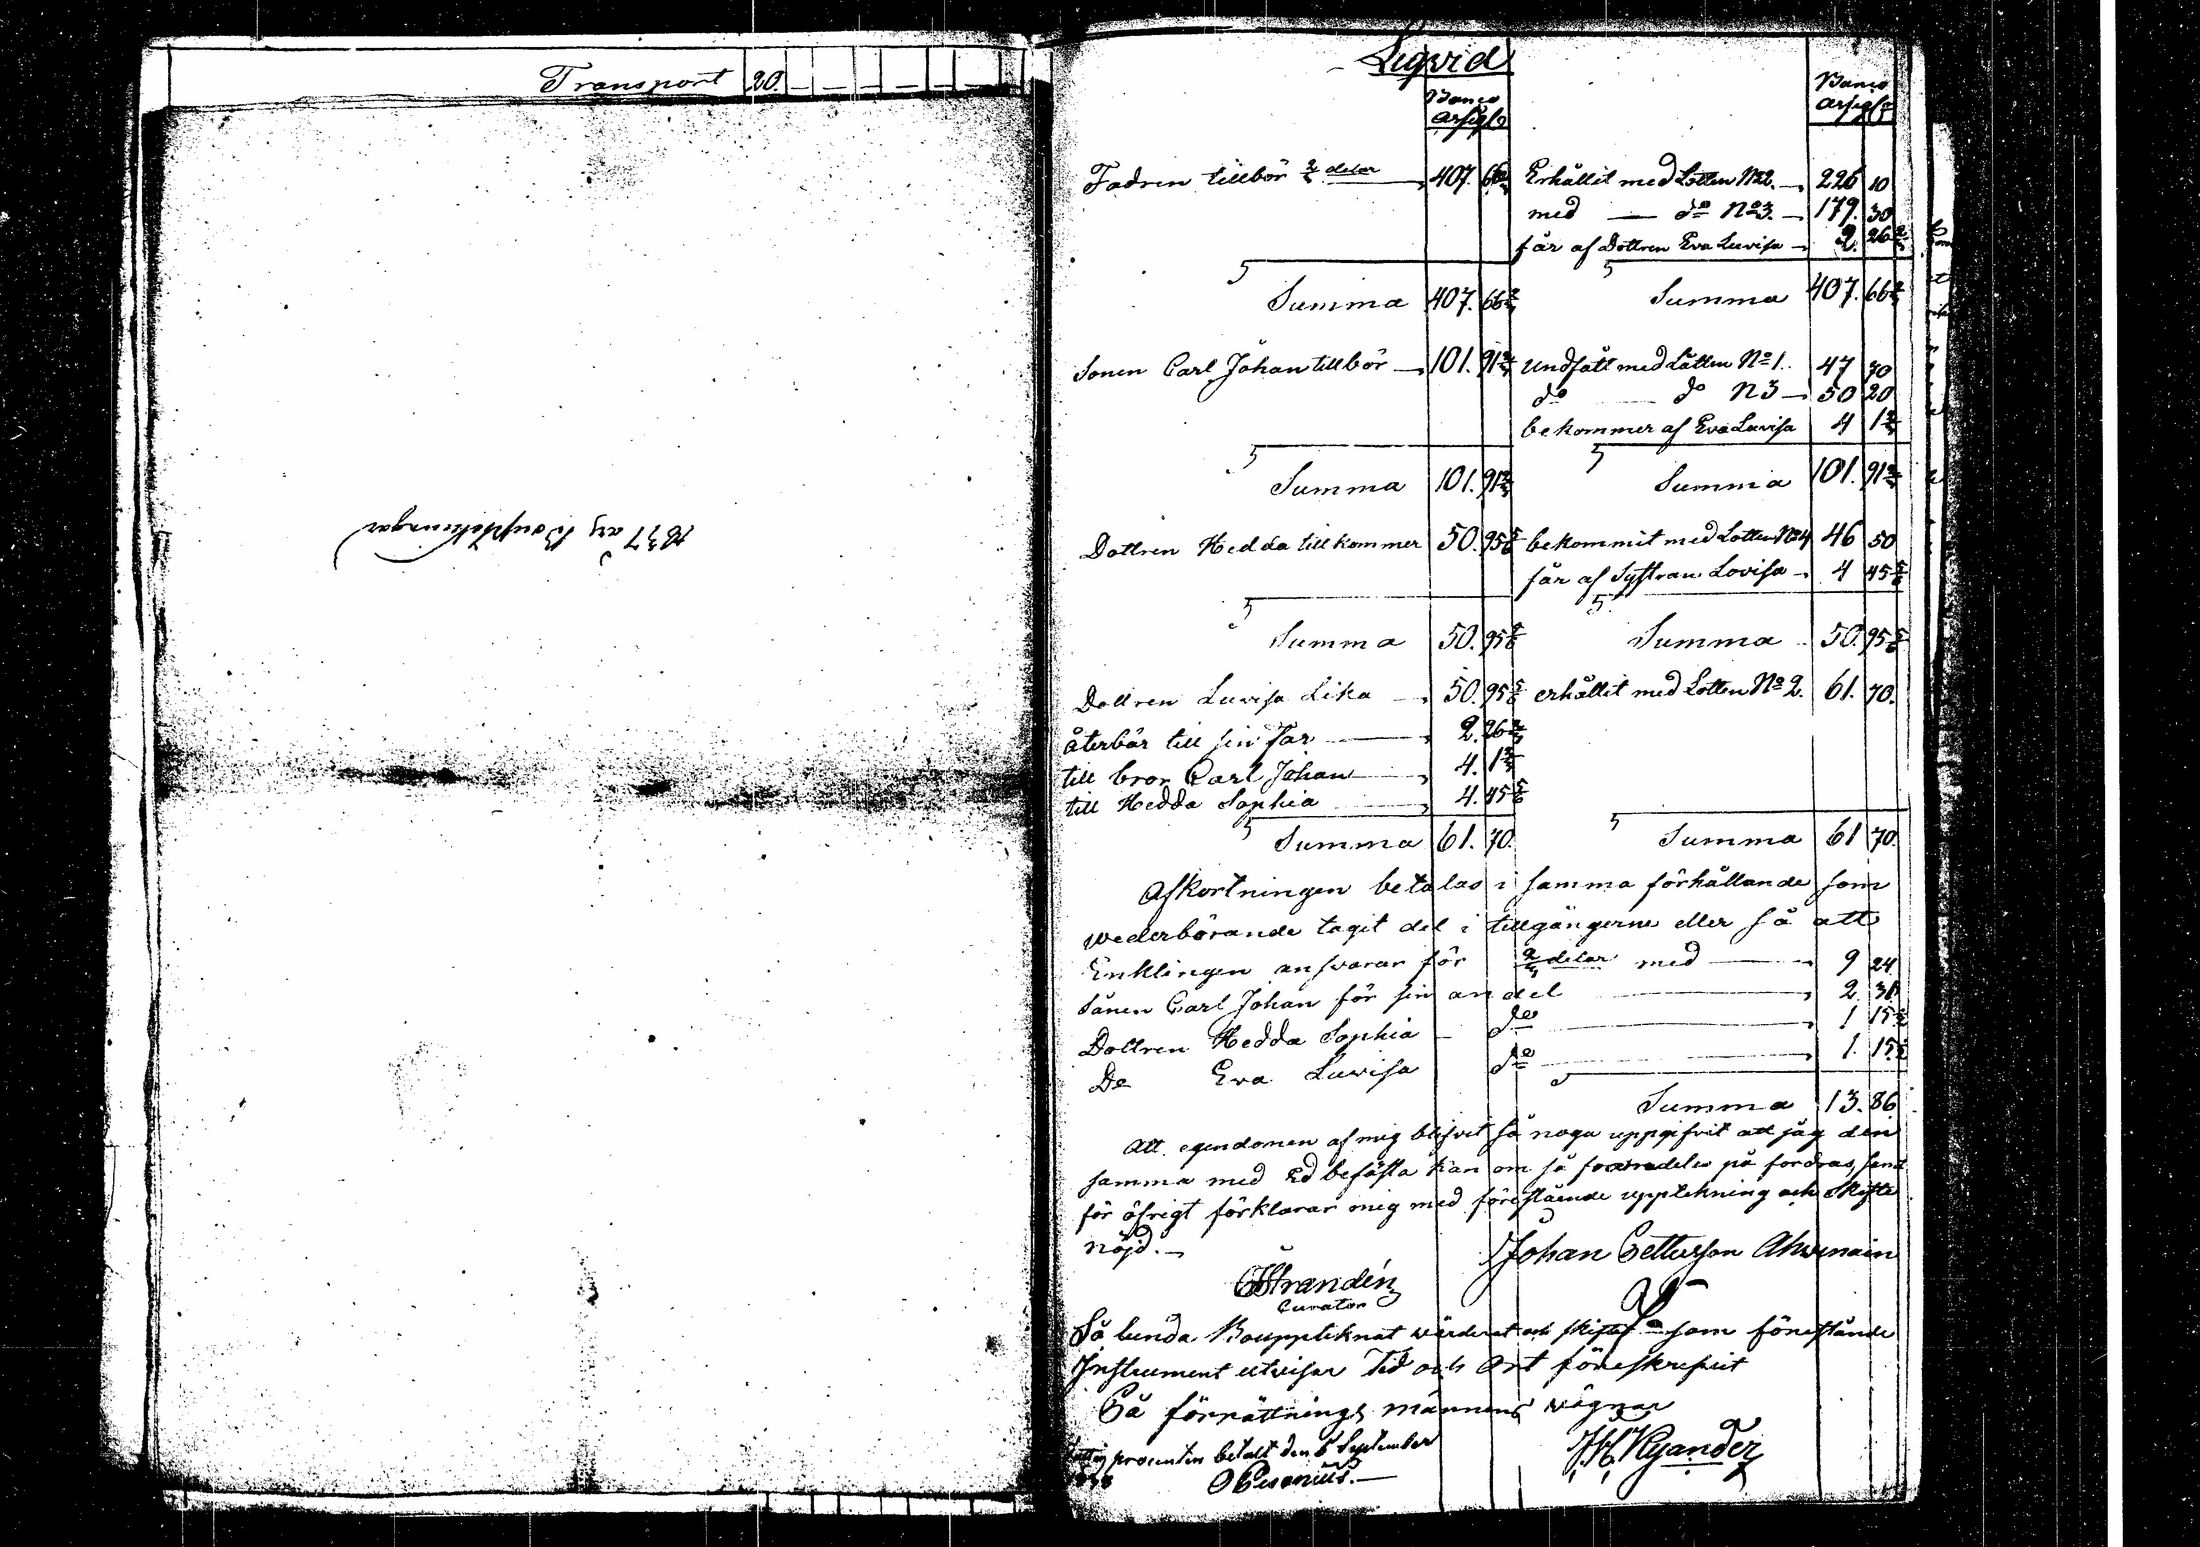 Transport 20. — — — — —
1837 års Bouptekningar
Liqvid
Banco Assig: Banco Assig:
Fadren tillbör 2/3 delar — 407. 66 2/3 Erhållit med Lotten No 2. — 226 10
med — do No 3. — 179. 30
får af Dottren Eva Luvisa — 2. 26 2/3
Summa 407. 66 2/3 Summa 407. 66 2/3
Sonen Carl Johan tillbör — 101. 91 2/3 undfått med Låtten No 1. 47 70
do — do N 3 — 50 20
bekommer af Eva Luvisa 4 1 2/3
Summa 101. 91 2/3 Summa 101. 91 2/3
Dottren Hedda tillkommer 50. 95 5/6 bekommit med Lotten No 4 46 50
får af Systran Lovisa — 4 45 5/6
Summa 50. 95 5/6 Summa 50. 95 5/6
Dottren Luvisa Lika — 50. 95 5/6 erhållit med Lotten No 2. 61. 70.
återbär till sin Far — 2. 26 2/3
till bror Carl Johan — 4. 1 2/3
till Hedda Sophia — 4. 45 5/6
Summa 61. 70. Summa 61 70.
Afkortningen betalas i samma förhållande som
wederbörande tagit del i tillgångerne eller så att
Enklingen ansvarar för 2/3 delar med — 9 24
Sånen Carl Johan för sin andel — 2. 31
Dottren Hedda Sophia — do — 1 15 1/2
De Eva Luvisa do — 1. 15 1/2
Summa 13. 86
Att egendomen af mig blifvit så noga uppgifvit att jag den
samma med Ed befästa kan om så framdeles på fordras, samt
för öfrigt förklarar mig med förestående upptekning och Skifte
nöjd. —
Johan Pettersson Ahvenain
Strandén
Curator
Så lunda Bouppteknat värderat och skiftat som föreståndе
Instrument utvisar Tid och Ort föreskrefvit
På förrättnings männens vägnar
procenten betalt den 5 September
J. H. Kyander